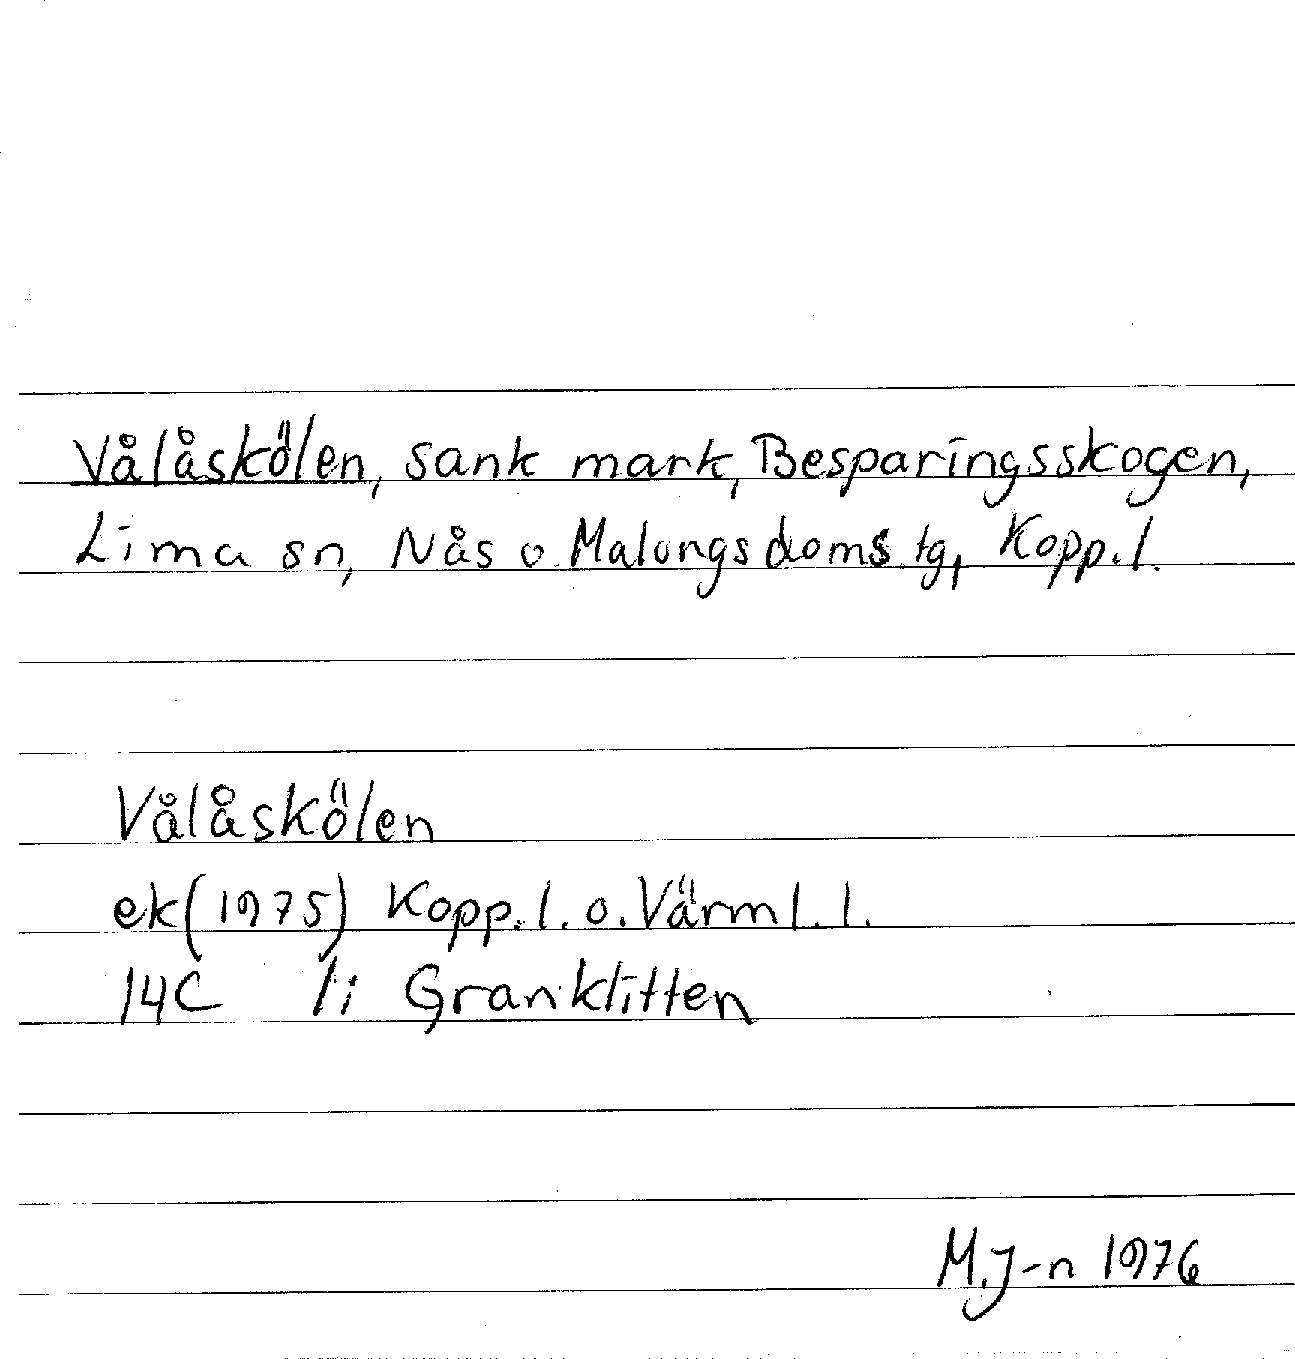 Vålåskölen, sank mark, Besparingsskogen,
Lima sn, Nås o Malungs doms.tg, Kopp.l.
Vålåskölen
ek(1975) Kopp.l. o. Värml.l.
14C 1i Granklitten
M.J-n 1976